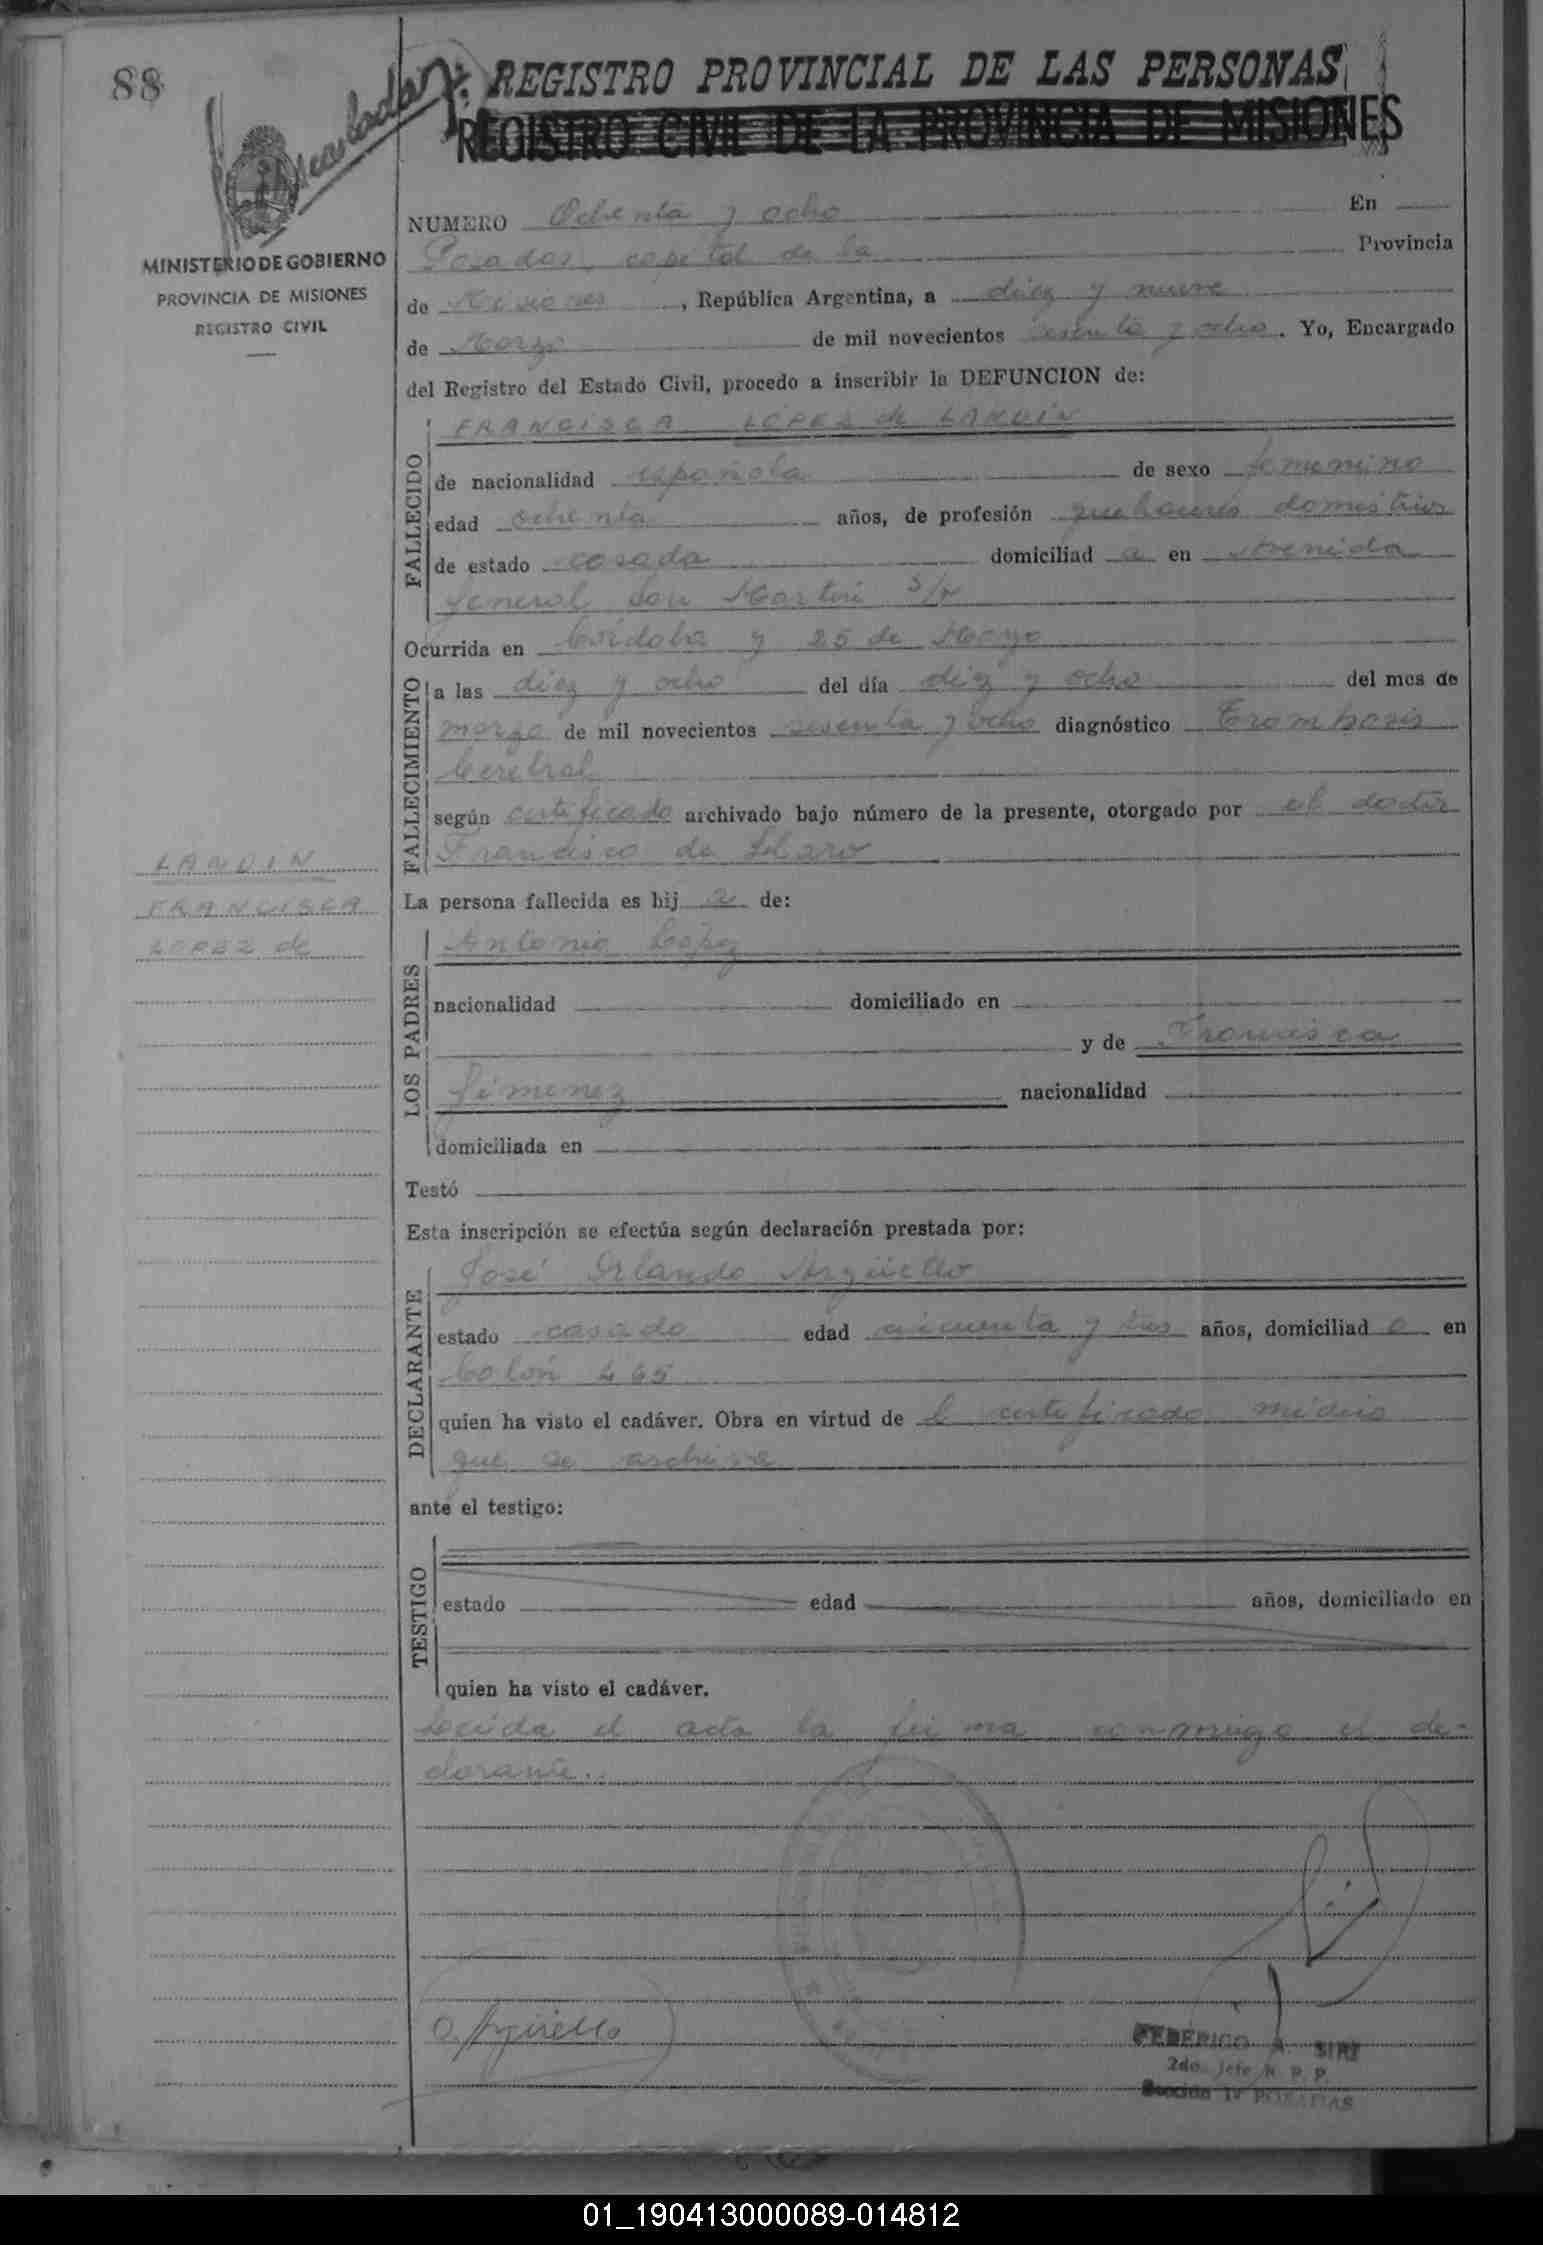 88
REGISTRO PROVINCIAL DE LAS PERSONAS
REGISTRO CIVIL DE LA PROVINCIA DE MISIONES
MINISTERIO DE GOBIERNO
PROVINCIA DE MISIONES
REGISTRO CIVIL
NUMERO Ochenta y ocho En
Posadas, capital de la Provincia
de Misiones, República Argentina, a diez y nueve
de Marzo de mil novecientos sesenta y ocho. Yo, Encargado
del Registro del Estado Civil, procedo a inscribir la DEFUNCION de:
FALLECIDO
FRANCISCA LOPEZ de LANDIN
de nacionalidad española de sexo femenino
edad ochenta años, de profesión quehaceres domesticos
de estado casada domiciliad a en Avenida
General San Martin S/N
Ocurrida en Córdoba y 25 de Mayo
FALLECIMIENTO
a las diez y ocho del día diez y ocho del mes de
marzo de mil novecientos sesenta y ocho diagnóstico Trombosis
Cerebral
según certificado archivado bajo número de la presente, otorgado por el doctor
Francisco de Haro
LANDIN
FRANCISCA
LOPEZ de
La persona fallecida es hij a de:
LOS PADRES
Antonio Lopez
nacionalidad domiciliado en
y de Francisca
Jimenez nacionalidad
domiciliada en
Testó
Esta inscripción se efectúa según declaración prestada por:
DECLARANTE
José Orlando Argüello
estado casado edad cincuenta y tres años, domiciliad o en
Colón 465
quien ha visto el cadáver. Obra en virtud de l certificado médico
que se archiva
ante el testigo:
TESTIGO
estado edad años, domiciliado en
quien ha visto el cadáver.
Leída el acta la firma conmigo el de-
clarante.
O. Argüello
FEDERICO A. SIRI
2do. Jefe R. P. P.
Sección IV POSADAS
01_190413000089-014812